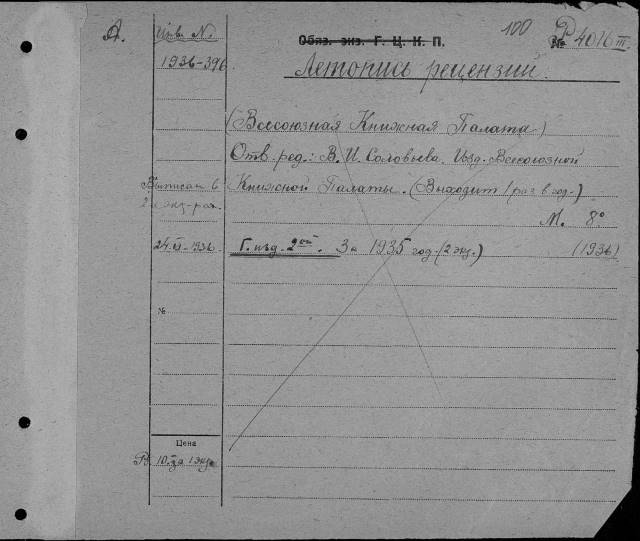 А. Инв. N. 100 № Р 4016 III
Обяз. экз. Г. Ц. К. П.
1936-396
Летопись рецензий.
(Всесоюзная Книжная Палата)
Отв. ред.: В. И. Соловьева. Изд. Всесоюзной
Выписан 6
Книжной Палаты. (Выходит 1 раз в год.)
2 экз.
М. 8°
24. XI - 1936. Г. изд. 2ой За 1935 год. (2 экз.) (1936)
№
Цена
10. за 1 экз.